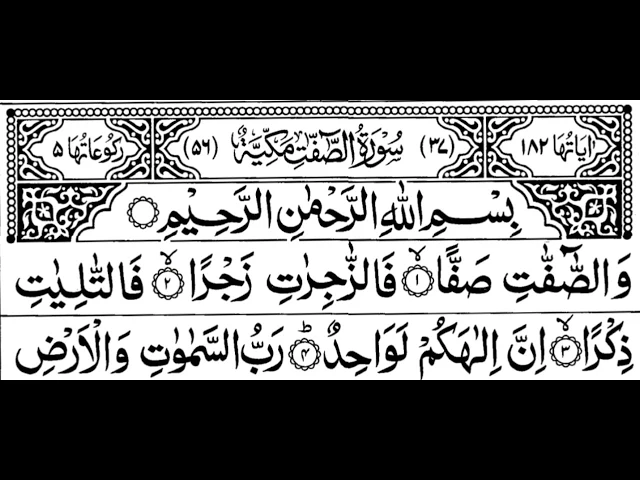 اٰيَاتُهَا ١٨٢ (٣٧) سُوْرَةُ الصّٰٓفّٰتِ مَكِّيَّةٌ (٥٦) رُكُوْعَاتُهَا ٥
بِسْمِ اللّٰهِ الرَّحْمٰنِ الرَّحِيْمِ
وَالصّٰٓفّٰتِ صَفًّا ۙ﴿١﴾ فَالزّٰجِرٰتِ زَجْرًا ۙ﴿٢﴾ فَالتّٰلِيٰتِ
ذِكْرًا ۙ﴿٣﴾ اِنَّ اِلٰهَكُمْ لَوَاحِدٌ ؕ﴿٤﴾ رَبُّ السَّمٰوٰتِ وَالْاَرْضِ